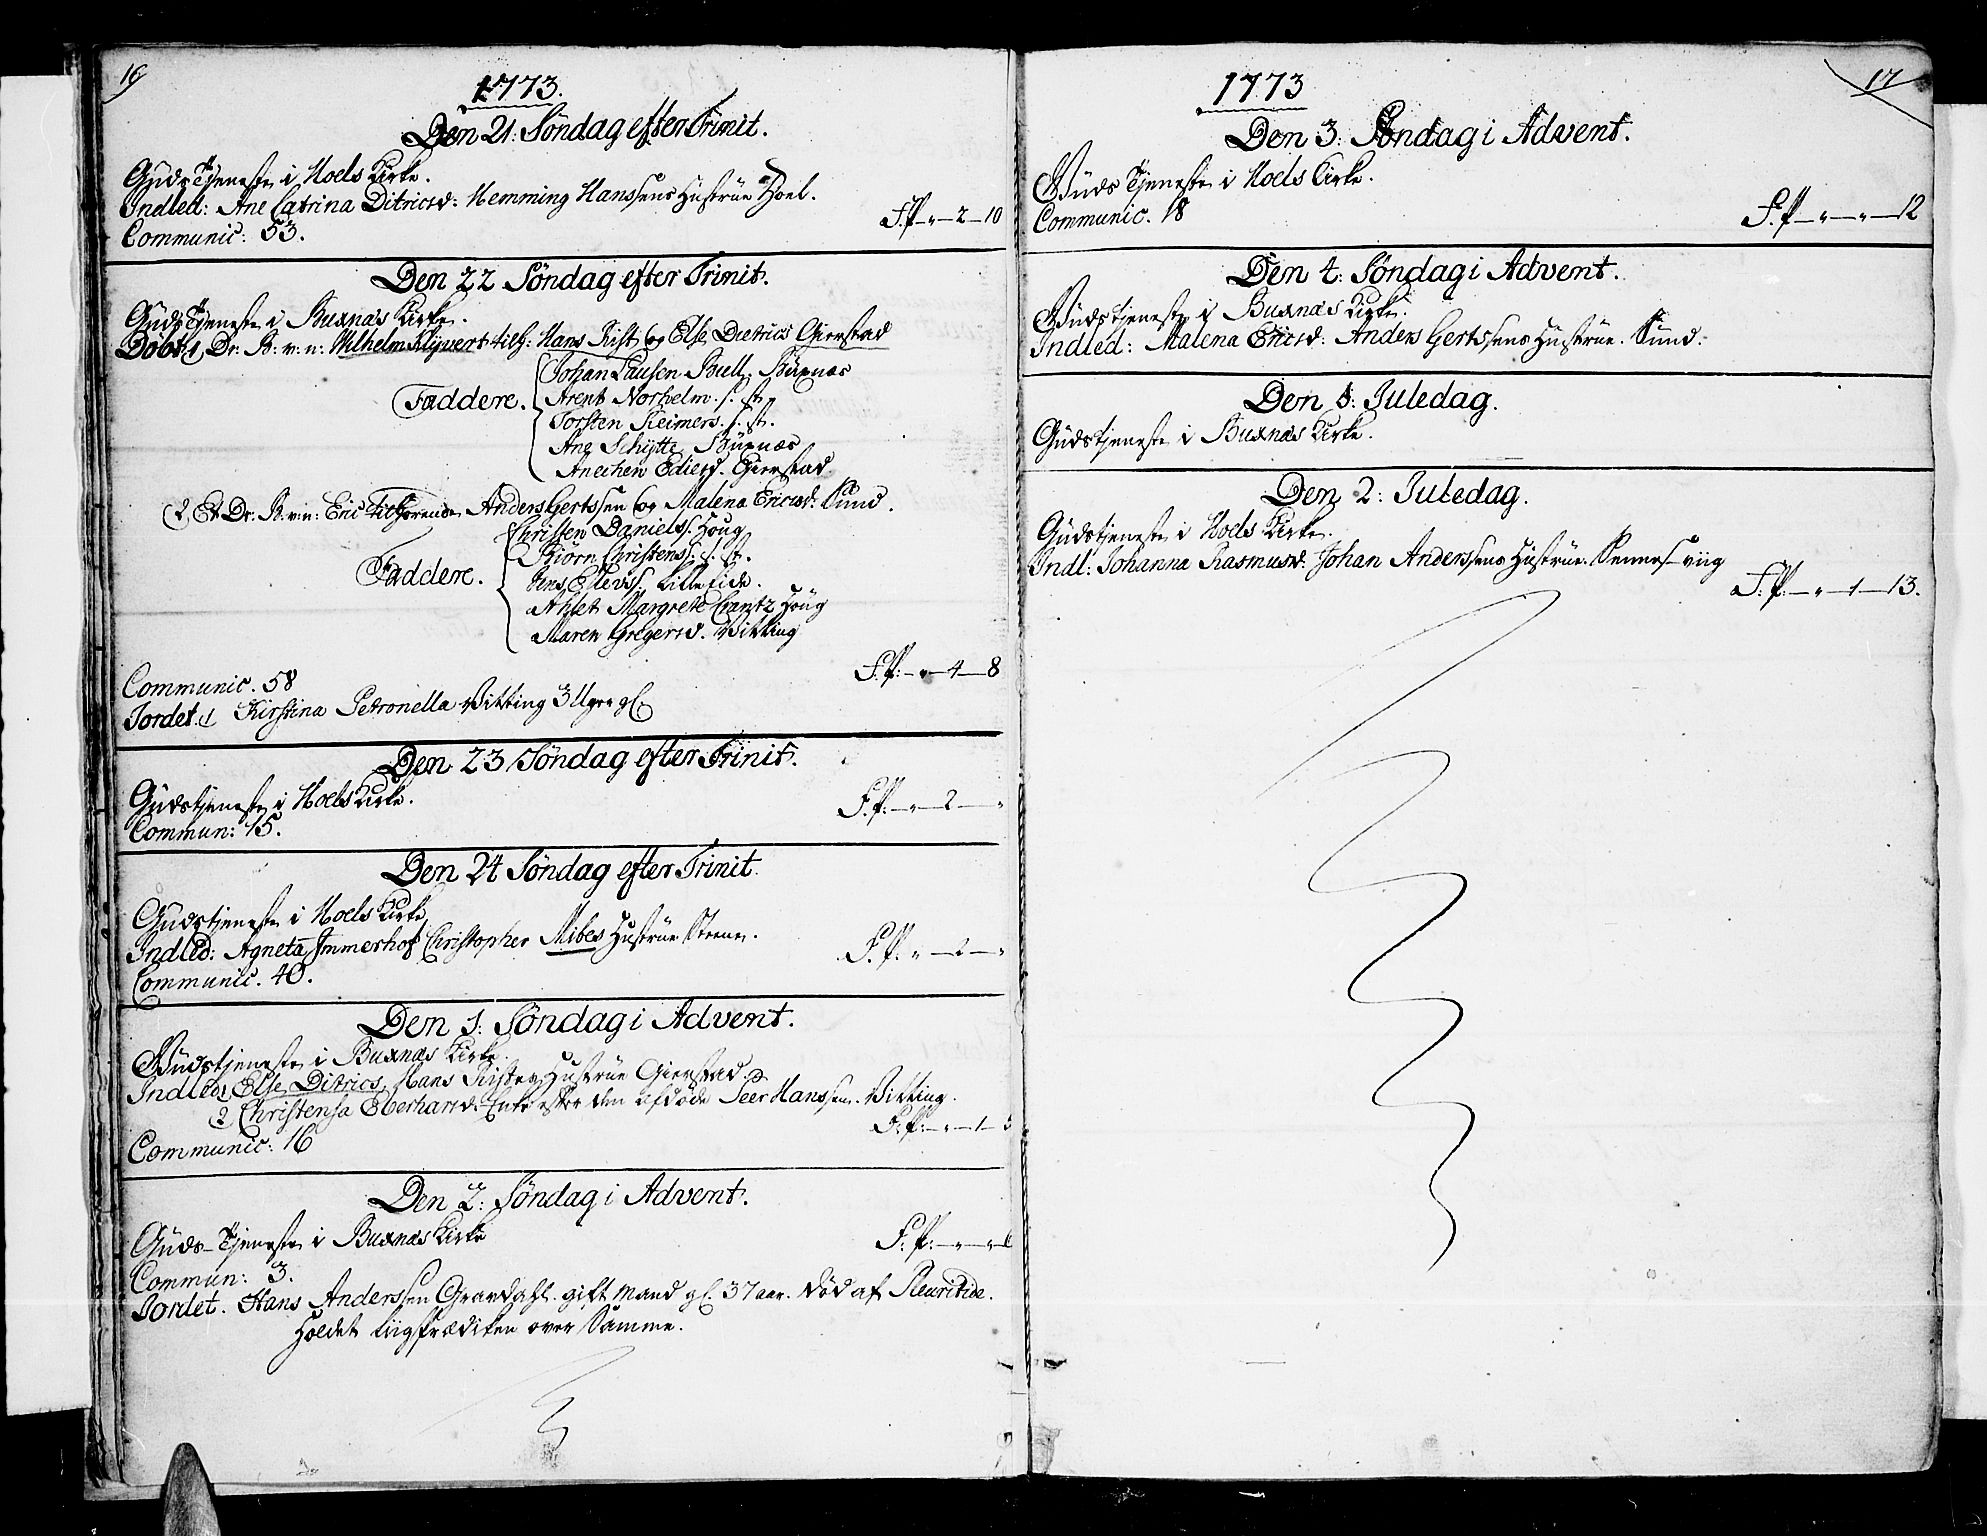 16
1773.
Den 21: Söndag efter Trinit.
Guds Tjeneste i Hoels Kirke.
Indled: Ane Catrina Ditricsd: Hemming Hanssens Hustrue Hoel.
F.P. - " - 2 - 10
Communic: 53.
Den 22 Söndag efter Trinit.
Guds Tjeneste i Buxnæs Kirke.
Döbt 1 Dr. B: v: n: Wilhelm tilh: Hans Rist og Else Dietrics Gierstad
Johan Lausen Bull. Buxnæs
Faddere. Arent Norholm. s. st.
Torsten Reimers. s. st.
Ane Schÿtte Buxnæs
Anechen Edisd. Gierstad.
2) Et Dr. B. v: n: Eric tilhörende Anders Gertssen og Malena Ericsd: Sund.
Christen Daniels: Houg
Biörn Christens: s. st.
Faddere. Jens Ellevss. Lille Eide.
Ahlet Margrete Crantz Houg
Maren Gregersd. Vitting
F.P: - " - 4 - 8
Communic. 58
Jordet. 1 Kirstina Petronella Vitting 3 Uger gl:
Den 23 Söndag efter Trinit.
Gudstjeneste i Hoels Kirke.
F.P: - " - 2 - "
Commun: 15.
Den 24 Söndag efter Trinit.
Gudstjeneste i Hoels Kirke
Indled: Agneta Immerhof Christopher Mibes Hustrue Steene.
F.P. " - 2 - "
Communic. 40.
Den 1: Söndag i Advent.
Gudstjeneste i Buxnæs Kirke.
Indled 1 Else Ditrics, Hans Ristes Hustrue Gierstad.
2) Christensa Eberhardsd. Enke efter den afdöde Peer Hanssen. Vitting.
F:P: - " - 1 - 3
Communic: 16
Den 2: Söndag i Advent.
Guds-Tjeneste i Buxnæs Kirke
F:P: - " - " - 6
Commun: 3.
Jordet. Hans Anderssen Gravdahl. gift Mand gl. 37 aar. död af Pleuritide.
Holdet Liigprædiken over Samme.
17
1773
Den 3: Söndag i Advent.
Guds Tjeneste i Hoels Kirke.
Communic. 18
F.P - " - " - 12
Den 4: Söndag i Advent.
Gudstjeneste i Buxnæs Kirke.
Indled: Malena Ericsd: Anders Gertssens Hustrue. Sund:
Den 1: Juledag.
Gudstjeneste i Buxnæs Kirke.
Den 2: Juledag.
Gudstjeneste i Hoels Kirke.
Indl: Johanna Rasmusd: Johan Anderssens Hustrue. Sennesviig
F:P: - " - 1 - 13.